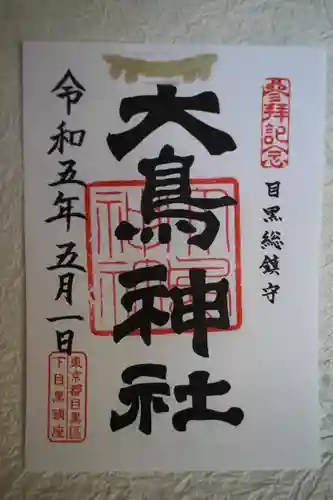 參拜記念
目黒総鎮守
大鳥神社
令和五年五月一日
東京都目黒区
下目黒鎮座